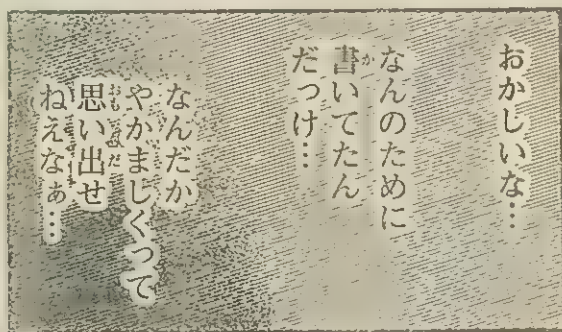 おかしいな…
なんのために
書いてたん
だっけ…
なんだか
やかましくって
思い出せ
ねえなぁ…